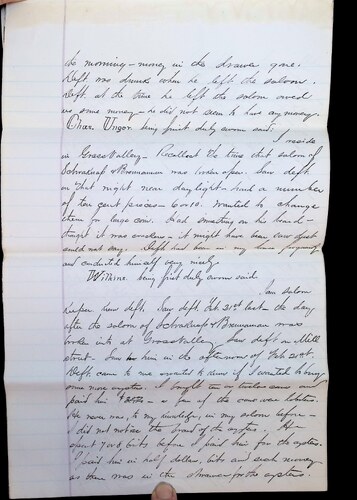 the morning - money in the drawer gone.
Deft was drunk when he left the saloon.
Deft. at the time he left the saloon owed
us some money - he did not seem to have any money.
Chas. Unger. being first duly sworn said.
I reside
in Grass Valley - Recollect the time that saloon of
Schradrup & Brennaman was broken open. Saw deft.
on that night near day light - had a number
of ten cent pieces - 6 or 10. Wanted to change
them for large coin. Had something on his hand -
thought it was - it might have been
could not say. Deft had been in my house frequently
and conducted himself very nicely.
Wilkins being first duly sworn said.
I am saloon
keeper know deft. Saw deft. Feb 21st last the day
after the saloon of Schradrup & Brennaman was
broke into at Grass Valley. Saw deft on Mill
street. Saw him in the afternoon of Feb 21st.
Deft. came to me wanted to know if I wanted to buy
some more oysters. I bought ten or twelve cans and
paid him - a few of the cans were lobsters.
He never was, to my knowledge, in my saloon before -
I did not notice the brand of the oysters. He
spent 7 or 8 bits, before I paid him for the oysters.
I paid him in half dollars, bits and such money
as there was in the drawer for the oysters.